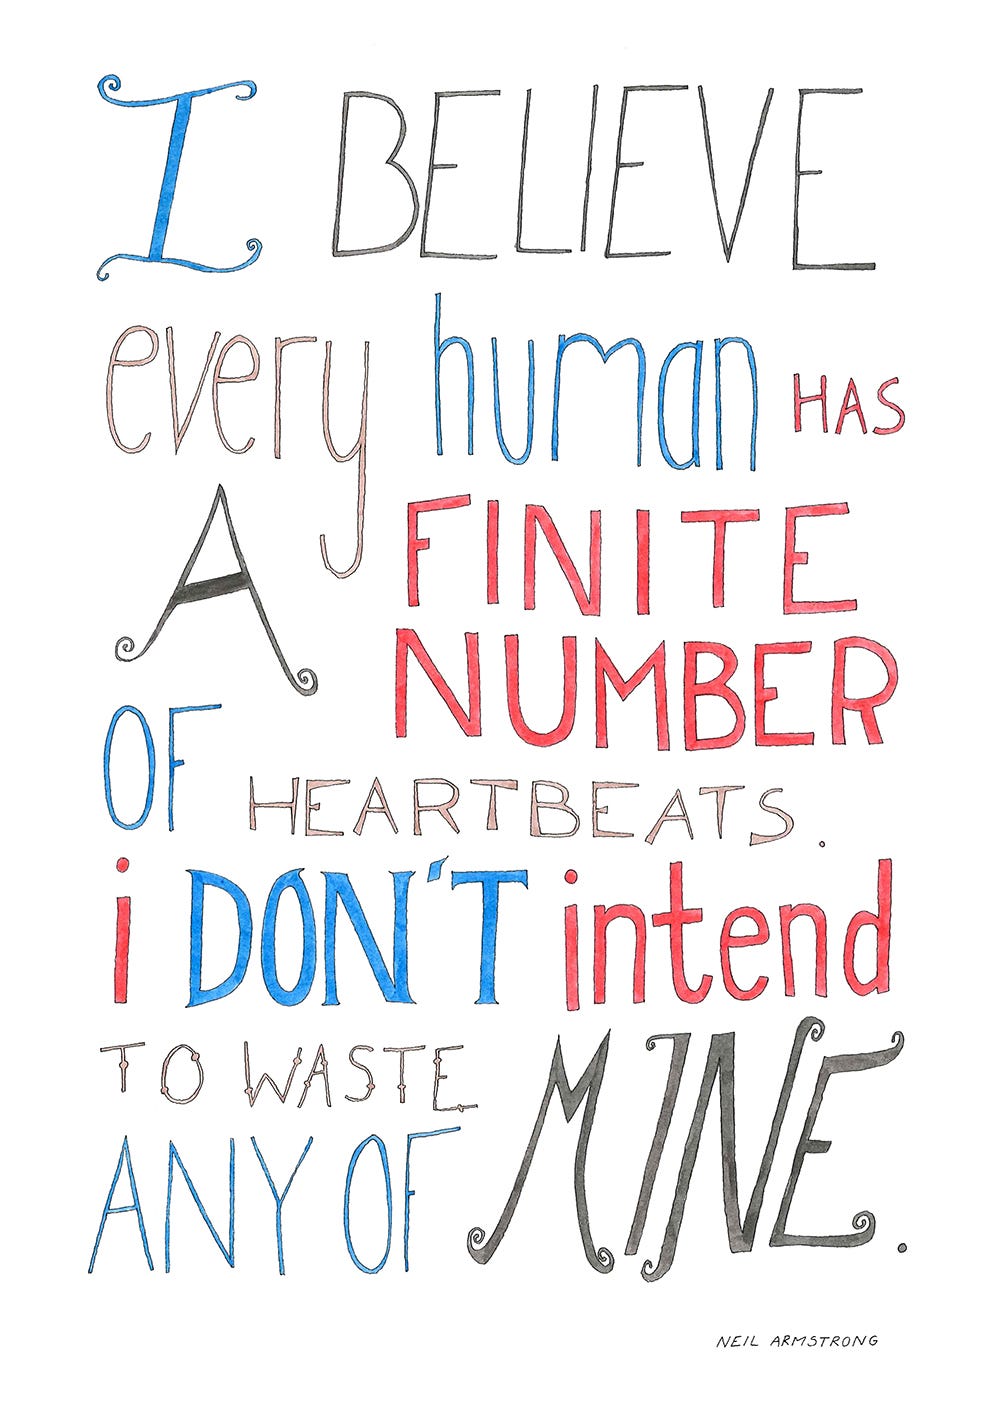 I BELIEVE
every human HAS
A FINITE
NUMBER
OF HEARTBEATS.
i DON'T intend
TO WASTE MINE.
ANY OF
NEIL ARMSTRONG